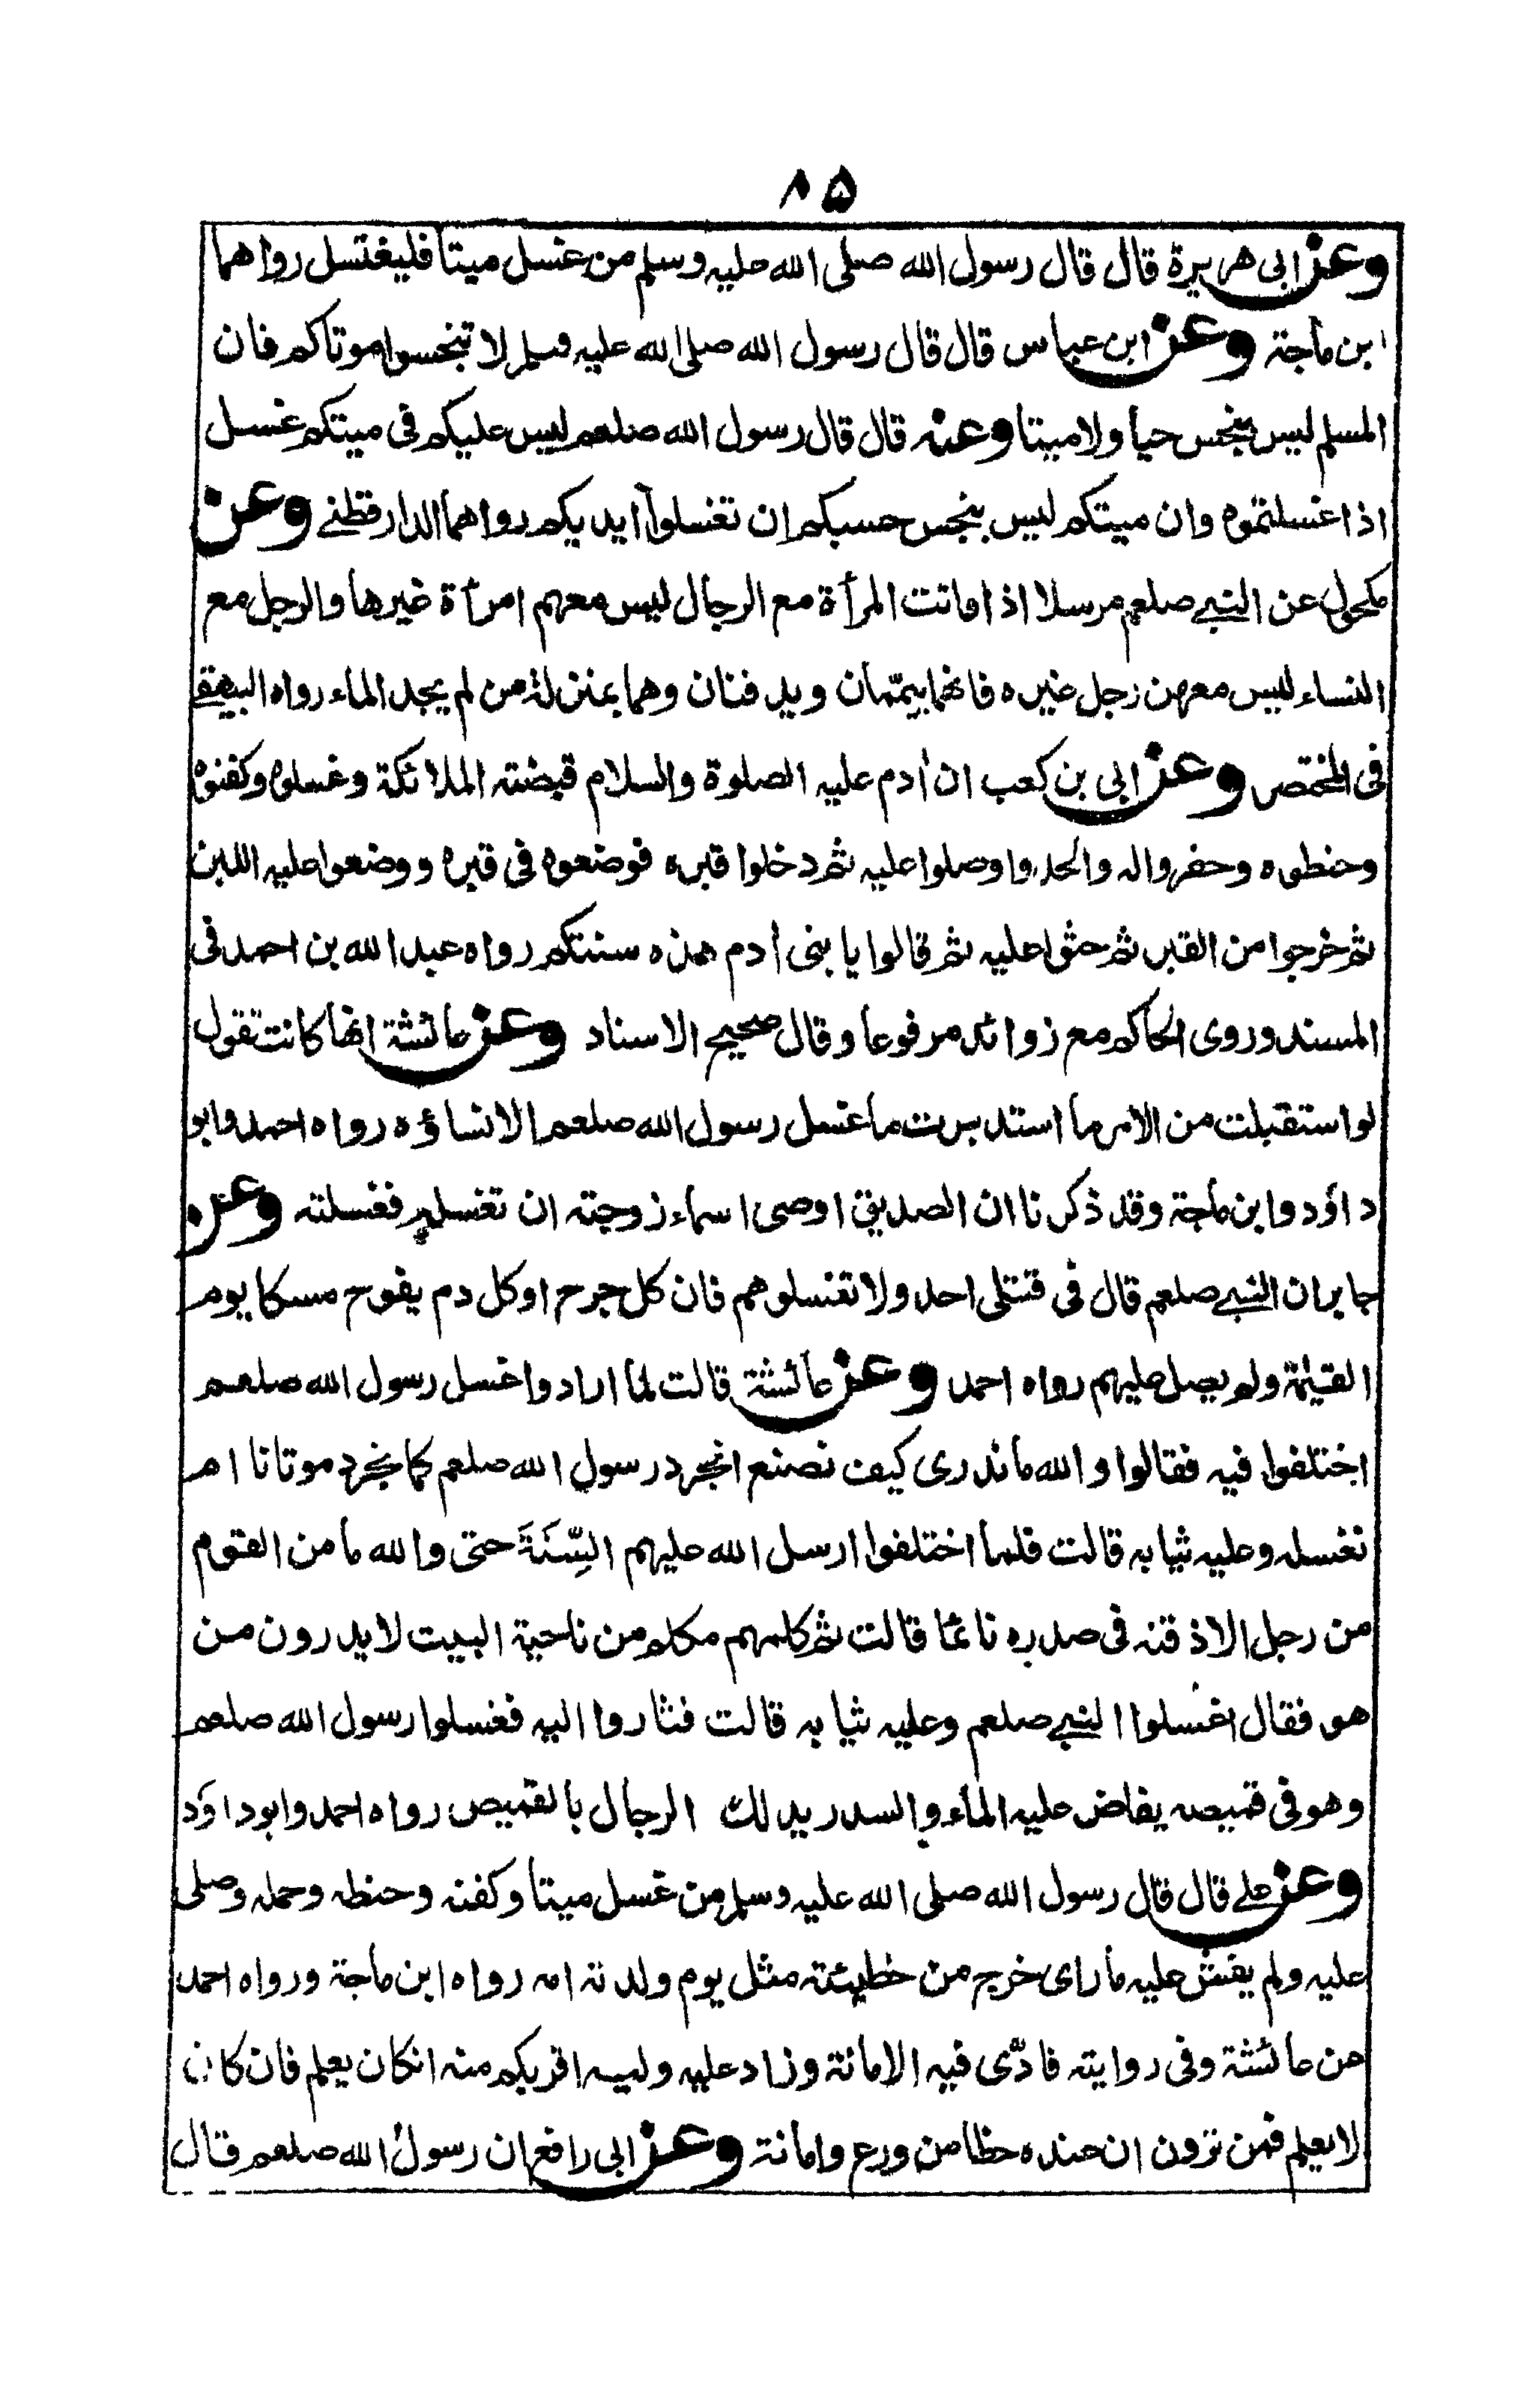 ٨٥
وعن ابى هريرة قال قال رسول الله صلى الله عليه وسلم من غسل ميتا فليغتسل رواهما
ابن ماجة وعن ابن عباس قال قال رسول الله صلى الله عليه وسلم لا تنجسوا موتاكم فان
المسلم ليس بنجس حيا ولا ميتا وعنه قال قال رسول الله صلعم ليس عليكم فى ميتكم غسل
اذا غسلتموه وان ميتكم ليس بنجس حسبكم ان تغسلوا ايديكم رواهما الدارقطنے وعن
مكحول عن النبے صلعم مرسلا اذا ماتت المرأة مع الرجال ليس معهم امرأة غيرها والرجل مع
النساء ليس معهن رجل غيره فانهما ييممان ويدفنان وهما بمنزلة من لم يجد الماء رواه البيهقے
فى المختصر وعن ابى بن كعب ان أدم عليه الصلوة والسلام قبضته الملائكة وغسلوه وكفنوه
وحنطوه وحفروا له والحدوا وصلوا عليه ثم دخلوا قبره فوضعوه فى قبره ووضعوا عليه اللبن
ثم خرجوا من القبر ثم حثوا عليه ثم قالوا يا بنى أدم هذه سنتكم رواه عبد الله بن احمد فى
المسند وروى الحاكم مع زوائد مرفوعا وقال صحيح الاسناد وعن عائشة انها كانت تقول
لو استقبلت من الامر ما استدبرت ما غسل رسول الله صلعم الا نساؤه رواه احمد وابو
داؤد وابن ماجة وقد ذكرنا ان الصديق اوصى اسماء زوجته ان تغسله فغسلته وعن
جابر ان النبے صلعم قال فى قتلى احد ولا تغسلوهم فان كل جرح او كل دم يفوح مسكا يوم
القيمة ولم يصل عليهم رواه احمد وعن عائشة قالت لما ارادوا غسل رسول الله صلعم
اختلفوا فيه فقالوا والله ما ندرى كيف نصنع انجرد رسول الله صلعم كما نجرد موتانا ام
نغسله وعليه ثيابه قالت فلما اختلفوا ارسل الله عليهم السِّنَةَ حتى والله ما من القوم
من رجل الا ذقنه فى صدره نائما قالت ثم كلمهم مكلم من ناحية البيت لا يدرون من
هو فقال اغسلوا النبے صلعم وعليه ثيابه قالت فثاروا اليه فغسلوا رسول الله صلعم
وهو فى قميصه يفاض عليه الماء والسدر يدلك الرجال بالقميص رواه احمد وابو داؤد
وعن علے قال قال رسول الله صلى الله عليه وسلم من غسل ميتا وكفنه وحنطه وحمله وصلى
عليه ولم يفش عليه ما راى خرج من خطيئته مثل يوم ولدته امه رواه ابن ماجة ورواه احمد
عن عائشة وفى روايته فادّى فيه الامانة وزاد عليه وليه اقربكم منه انكان يعلم فان كان
لا يعلم فمن ترون ان عنده حظا من ورع وامانة وعن ابى رافع ان رسول الله صلعم قال